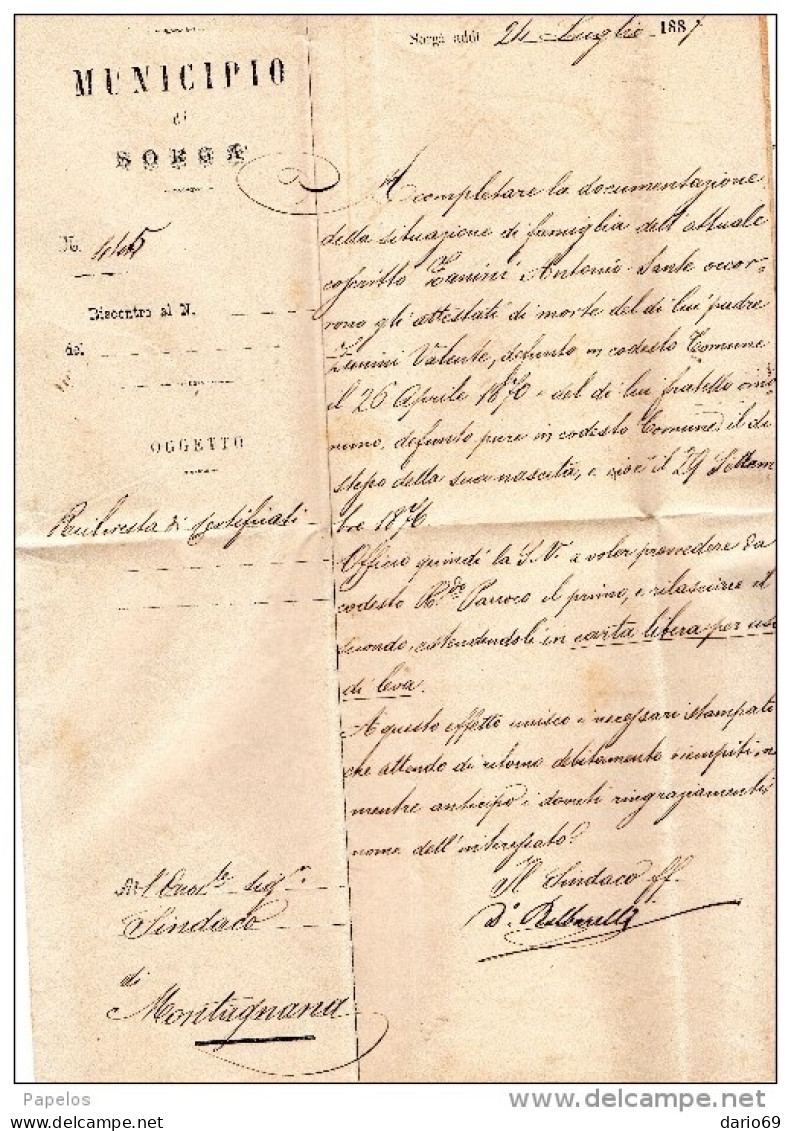 Sorgà addì 24 Luglio 1887
MUNICIPIO
di
SORGÀ
N. 445
Riscontro al N.
del
OGGETTO
Richiesta di certificati
A completare la documentazione
della situazione di famiglia dell'attuale
coscritto Zanini Antonio Sante occor-
rono gli attestati di morte del di lui padre
Zanini Valente, defunto in codesto Comune
il 26 Aprile 1870 e del di lui fratello omo
nimo, defunto pure in codesto Comune il dì
stesso della sua nascita, e cioè il 29 Settem
bre 1876
Officio quindi la S.V. a voler provvedere da
codesto R.do Parroco il primo, e rilasciare il
secondo, estendendoli in carta libera per uso
di leva.
A questo effetto unisco i necessari stampati
che attendo di ritorno debitamente riempiti,
mentre anticipo i dovuti ringraziamenti
nome dell'interessato.
Il Sindaco ff.
All'Onor.le Sig.r
Sindaco
di
Montagnana
Papelos
delcampe.net
dario69